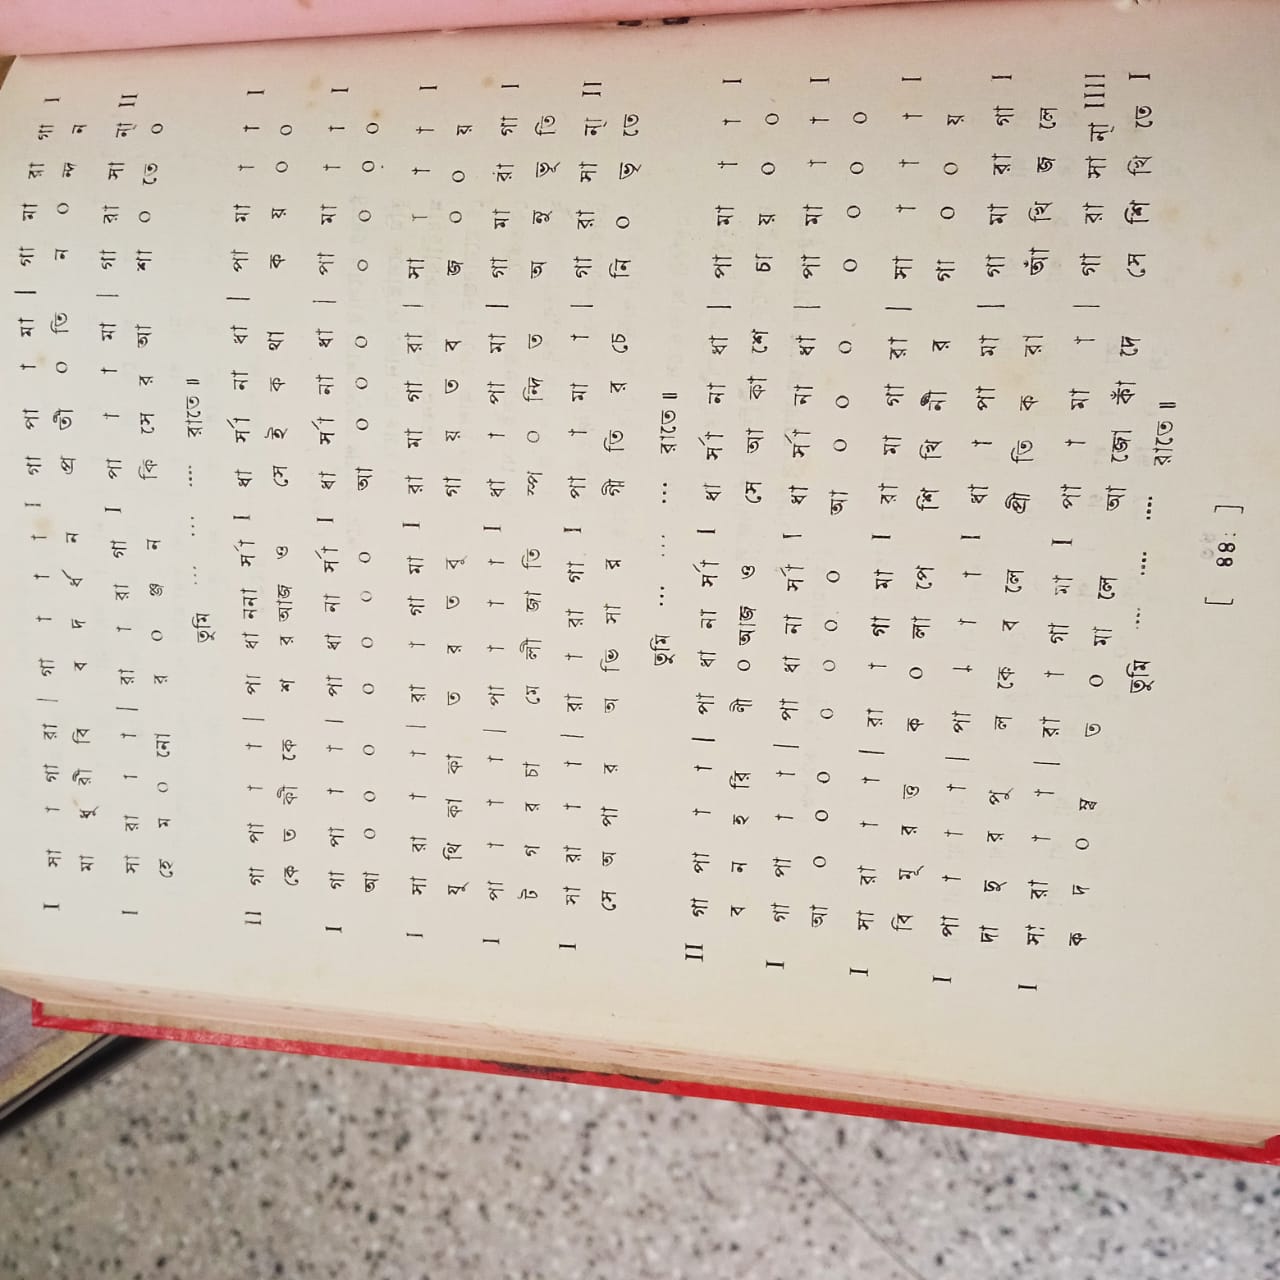 I সা া গা রা | গা া া া I গা পা া মা | গা মা রা গা I
মা ধু রী বি ব দ র্ধ ন প্র তী ০ তি ন ০ ন্দ ন
I সা রা া া | রা া রা গা I পা া া মা | গা রা সা ন্‌া II
হে ম ০ নো র ০ ঞ্জ ন কি সে র আ শা ০ তে ০
তুমি ... ... .... রাতে॥
II গা পা া া | পা ধা ননা র্সা I ধা র্সা না ধা | পা মা া া I
কে ত কী কে শ র আজ ও সে ই ক থা ক য় ০ ০
I গা পা া া | পা ধা না র্সা I ধা র্সা না ধা | পা মা া া I
আ ০ ০ ০ ০ ০ ০ ০ আ ০ ০ ০ ০ ০ ০ ০
I সা রা া া | রা া গা মা I রা মা গা রা | সা া া া I
যু থি কা কা ত র ত বু গা য় ত ব জ ০ ০ য়
I পা া া া | পা া া া I ধা া পা মা | গা মা রা গা I
ট গ র চা মে লী জা তি স্প ০ ন্দি ত অ নু ভূ তি
I সা রা া া | রা া রা গা I পা া মা া | গা রা সা ন্‌া II
সে অ পা র অ ভি সা র গী তি র চে নি ০ ভৃ তে
তুমি ... ... ... রাতে॥
II গা পা া া | পা ধা না র্সা I ধা র্সা না ধা | পা মা া া I
ব ন হ রি ণী ০ আজ ও সে আ কা শে চা য় ০ ০
I গা পা া া | পা ধা না র্সা I ধা র্সা না ধা | পা মা া া I
আ ০ ০ ০ ০ ০ ০ ০ আ ০ ০ ০ ০ ০ ০ ০
I সা রা া া | রা া গা মা I রা মা গা রা | সা া া া I
বি মূ র ত ক ০ লা পে শি খি নী র গা ০ ০ য়
I পা া া া | পা া া া I ধা া পা মা | গা মা রা গা I
দা দু র পু ল কে ব লে প্রী তি ক রা আঁ খি জ লে
I সা রা া া | রা া গা মা I পা া মা া | গা রা সা ন্‌া IIII
ক দ ০ ম্ব ত ০ মা লে আ জো কাঁ দে সে শি খি তে I
তুমি .... .... .... রাতে॥
[ 88: ]